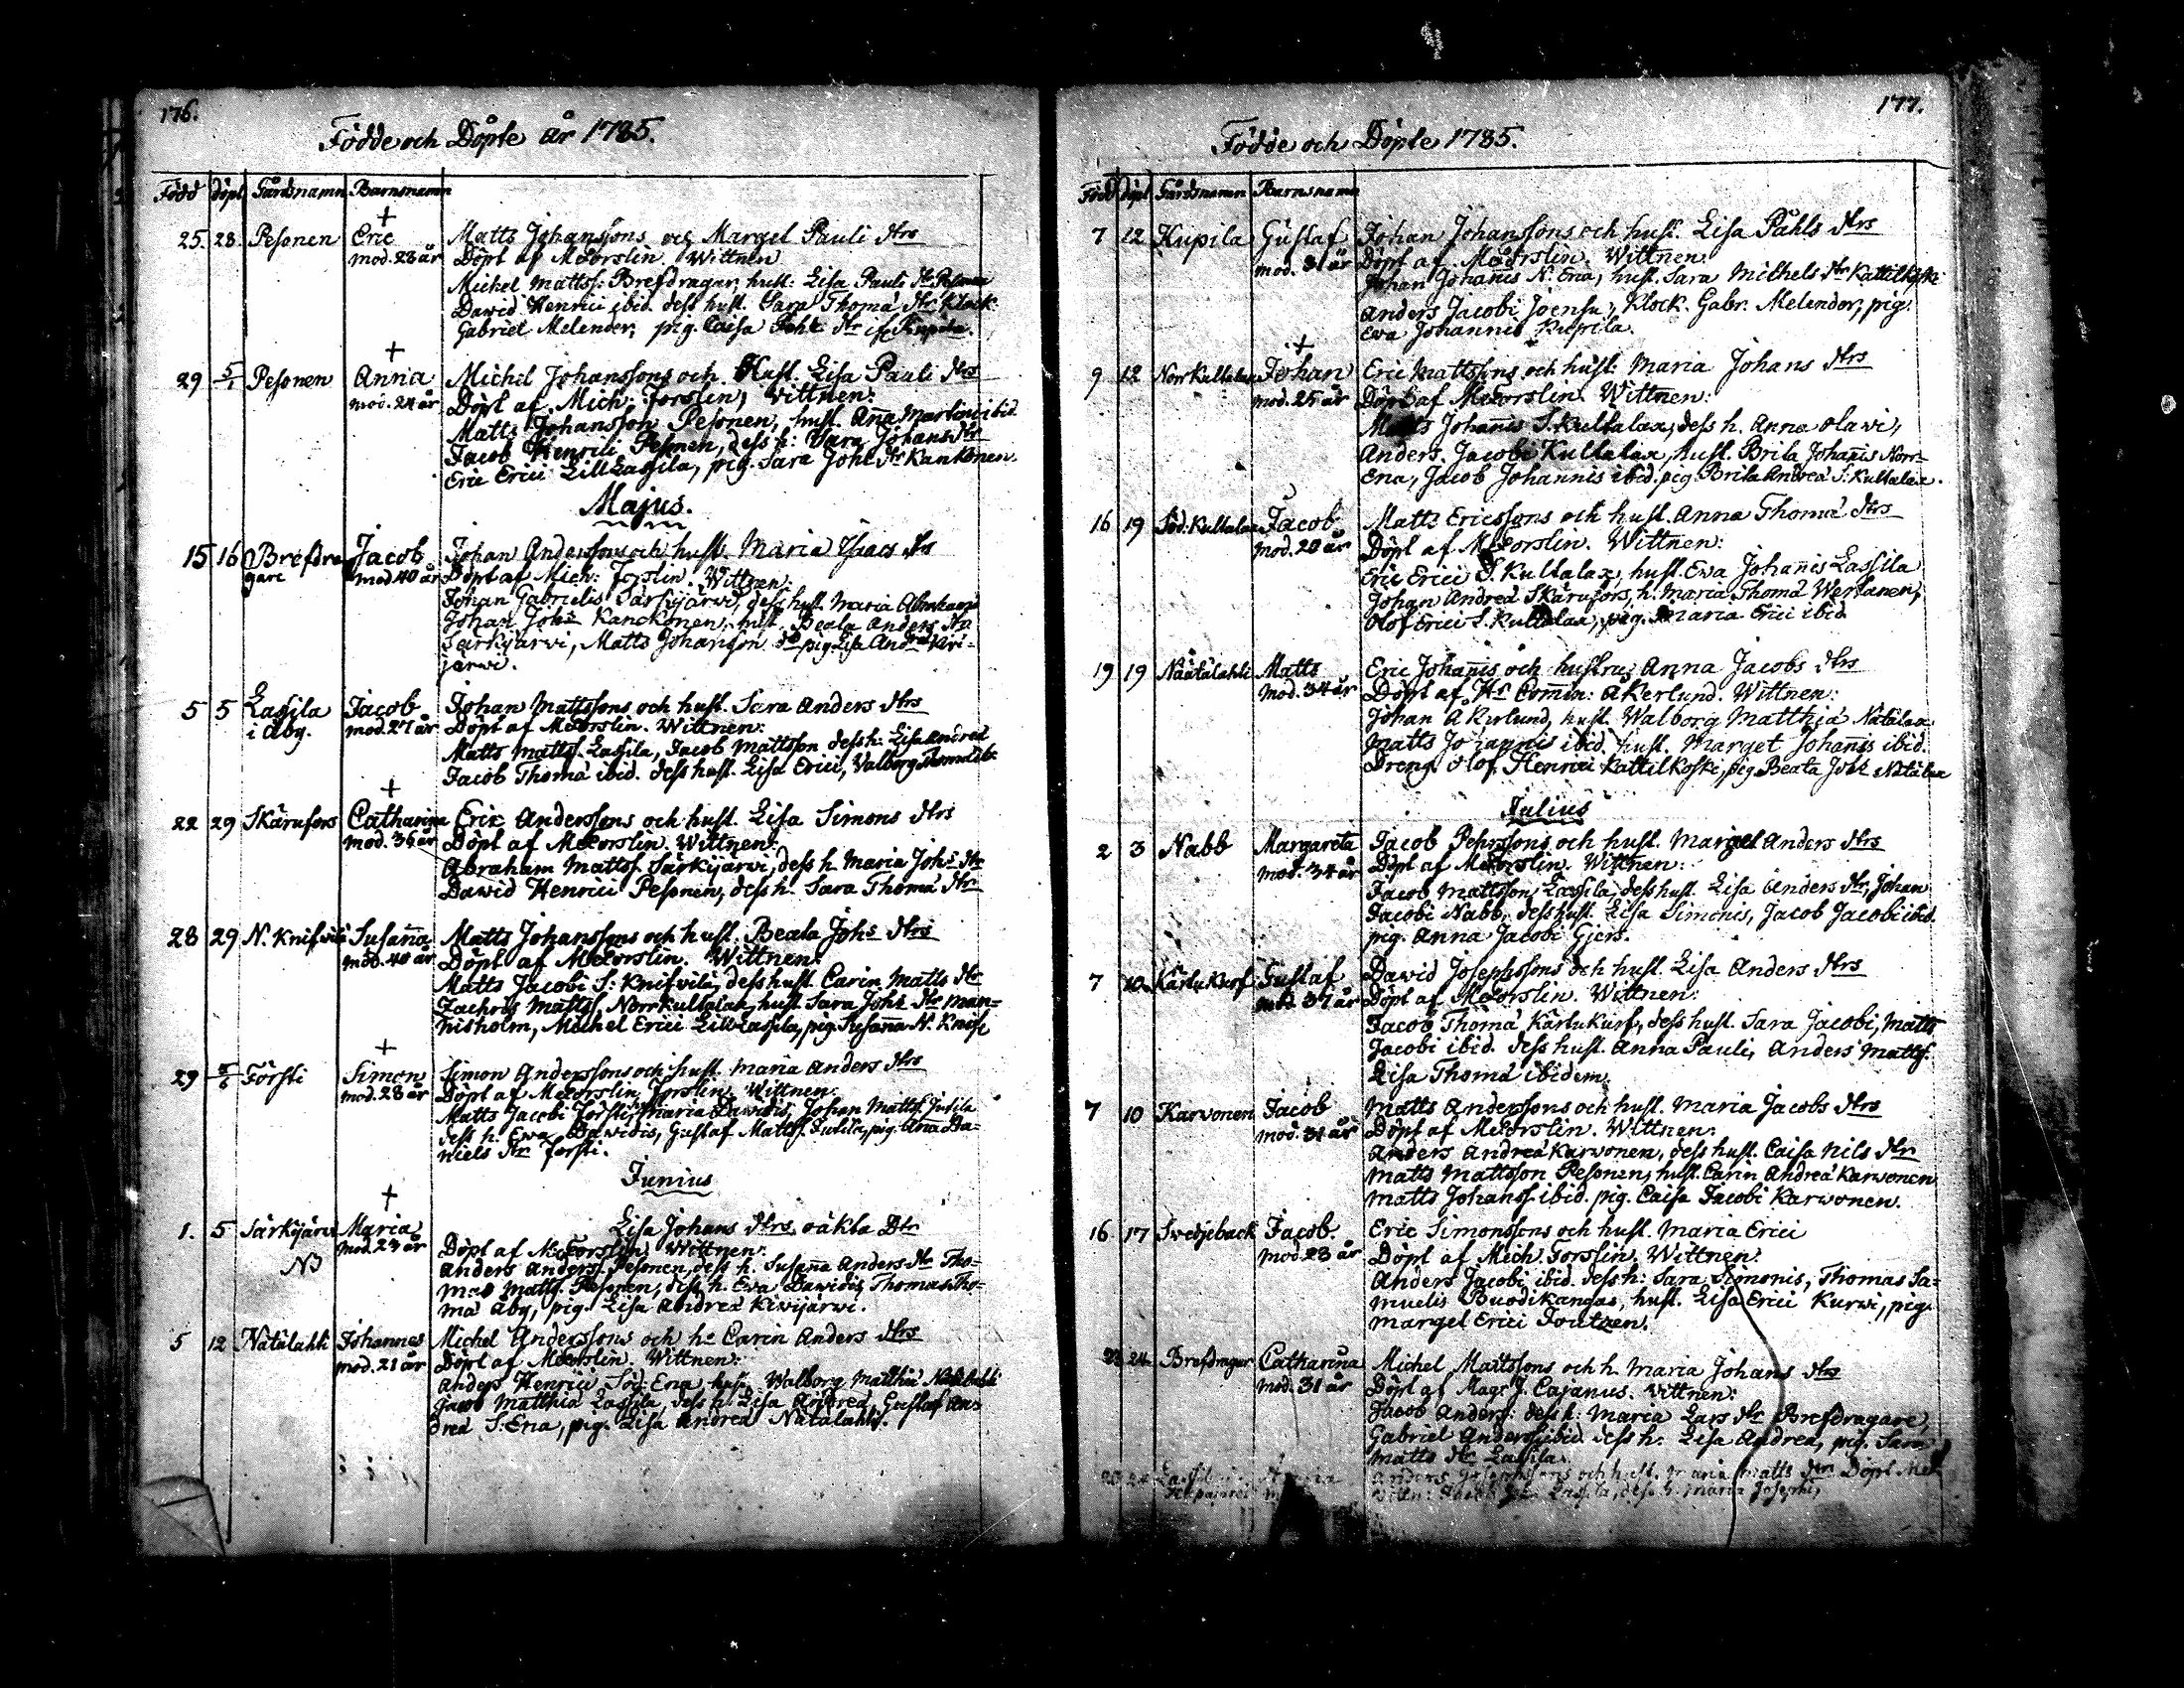 176.
Födde och Döpte år 1785.
Född döpt Gårdsnamn Barnsnamn
+
25. 28. Pesonen Eric Matts Johanssons och Marget Pauli dtrs
mod. 28 år Döpt af M Forslin. Wittnen
Michel Mattss: Brefdragar, hust: Lisa Pauli dtr Pesonen
Dawid Henrici ibid. dess hust. Sara Thomæ dtr Klock.
Gabriel Melender, pig. Caisa
+
29 5/1 Pesonen Anna Michel Johanssons och Hust. Lisa Pauli dtrs
mod. 24 år Döpt af Mich: Forslin, Vittnen:
Matts Johansson Pesonen, hust. Aña Martini ibid.
Jacob Henrici Pesonen, dess h: Sara Johans dtr
Eric Erici LillLassila, pig. Sara Johs dtr Kankonen.
Majus.
15 16 Brefdra Jacob Johan Anderssons och hust. Maria Isaacs dtrs
gare mod 40 år Döpt af Mich: Forslin. Wittnen:
Johan Gabrielis Särkijärwi, dess hust. Maria Abrahami
Johan Johs Kanckonen, hust. Beata Anders dtr
Särkijärwi, Matts Johansson pig Lisa Andreæ Kivi-
järwi.
5 5 Lassila Jacob Johan Mattssons och hust. Sara Anders dtrs
i Åby. mod. 27 år Döpt af M Forslin. Wittnen:
Matts Mattss. Lassila, Jacob Mattsson dess h: Lisa Andreæ
Jacob Thomæ ibid. dess hust. Lisa Erici, Valborg
+
22 29 Skärufors Catharina Eric Anderssons och hust. Lisa Simons dtrs
mod. 36 år Döpt af M Forslin. Wittnen:
Abraham Mattss. Särkijärwi, dess h. Maria Johs dtr
Dawid Henrici Pesonen, dess h. Sara Thomæ dtr
28 29 N. Knifvilä Susaña Matts Johanssons och hust. Beata Johs dtrs
mod. 40 år Döpt af M Forslin. Wittnen:
Matts Jacobi S: Knifvilä, dess hust. Carin Matts dtr
Zachris Mattss. Norrkultalax, hust. Sara Johs dtr Man-
nisholm, Michel Erici LillLassila, pig. Susaña N. Knifv
+
29 5/6 Försti Simon Simon Anderssons och hust. Maria Anders dtrs
mod. 28 år Döpt af M Forslin Forslin. Wittnen:
Matts Jacobi Försti, Maria Dawidis, Johan Mattss. Jutila
dess h. Ewa Dawidis, Gustaf Mattss. Jutila, pig. Aña Da-
niels dtr Försti.
Junius
+
1. 5 Särkijärvi Maria Lisa Johans dtrs oäkta Dtr
mod. 23 år Döpt af M: Forslin. Wittnen:
NB Anders Anderss. Pesonen, dess h. Susaña Anders dtr Tho-
mas Mattss. Pesonen, dess h. Ewa Dawidis, Thomas Tho-
mæ Åby, pig. Lisa Andreæ Kivijärwi.
5 12 Nätälahti Johannes Michel Anderssons och h: Carin Anders dtrs
mod. 21 år Döpt af M Forslin. Wittnen:
Anders Henrici Söd: Ena, hust. Walborg Matthiæ Nätälahti
Jacob Matthiæ Lassila, dess h. Lisa Andreæ, Gustaf An-
dreæ S: Ena, pig. Lisa Andreæ Nätälahti.
177.
Födde och Döpte 1785.
Född döpt Gårdsnamn Barnsnamn
7 12 Kupila Gustaf Johan Johanssons och hust. Lisa Påhls dtrs
mod. 31 år Döpt af M Forslin. Wittnen:
Johan Johañis N. Ena, hust. Sara Michels dtr Kattilkoski
Anders Jacobi Joensu, Klock. Gabr. Melender, pig.
Ewa Johannis Kupila.
+
9 12 Norr Kultalax Johan Eric Mattssons och hust. Maria Johans dtrs
mod. 25 år Döpt af M Forslin. Wittnen:
Matts Johanis S. Kultalax, dess h. Anna Olawi,
Anders Jacobi Kultalax, hust. Brita Johañis Norr-
Ena, Jacob Johannis ibid. pig. Brita Andreæ S: Kultalax.
16 19 Söd: Kultalax Jacob Matts Ericssons och hust. Anna Thomæ dtrs
mod. 20 år Döpt af M Forslin. Wittnen:
Eric Erici S. Kultalax, hust. Ewa Johañis Lassila
Johan Andreæ Skärufors, h. Maria Thomæ Wertanen,
Olof Erici S. Kultalax, pig. Maria Erici ibid
19 19 Näätälahti Matts Eric Johañis och hustru Anna Jacobs dtrs
mod. 34 år Döpt af Hr Commin: Åkerlund. Wittnen:
Johan Åkerlund, hust. Walborg Matthiæ Nätälax
Matts Johannis ibid. hust. Marget Johañis ibid.
Dreng. Olof Henrici Kattilkoski, pig. Beata Johs Nätälax
Julius
2 3 Nabb Margareta Jacob Pehrssons och hust. Marget Anders dtrs
mod. 34 år Döpt af M Forslin. Wittnen:
Jacob Mattsson Lassila, dess hust. Lisa Anders dtr, Johan
Jacobi Nabb, dess hust. Lisa Simonis, Jacob Jacobi ibid.
pig. Anna Jacobi Gjers.
7 10 Kärtu Kurf Gustaf Dawid Josephssons och hust. Lisa Anders dtrs
mod. 37 år Döpt af M Forslin. Wittnen:
Jacob Thomæ Kärtukurf, dess hust. Sara Jacobi, Matts
Jacobi ibid. dess hust. Anna Pauli, Anders Mattss.
Lisa Thomæ ibidem.
7 10 Karvonen Jacob Matts Anderssons och hust. Maria Jacobs dtrs
mod. 31 år Döpt af M Forslin. Wittnen:
Anders Andreæ Karvonen, dess hust. Caisa Nils dtr
Matts Mattsson Pesonen, hust. Carin Andreæ Karvonen
Matts Johanss. ibid. pig. Caisa Jacobi Karvonen.
16 17 Svedjeback Jacob. Eric Simonssons och hust. Maria Erici
mod 23 år Döpt af Mich. Forslin. Wittnen:
Anders Jacobi ibid. dess h: Sara Simonis, Thomas Sa-
muelis Buodikangas, hust. Lisa Erici Kurvi, pig.
Marget Erici Joutzen.
23 24 Brefdragar Catharina Michel Mattssons och h. Maria Johans dtrs
mod. 31 år Döpt af Magr J. Cajanus. Vittnen:
Jacob Anderss: dess h: Maria Lars dtr Brefdragare,
Gabriel Anderss. ibid. dess h: Lisa Andreæ, pig. Sara
Matts dtr Lassila.
Anders Josephssons och hust. Maria Matts dtr. Döpt
Lassila, dess h. Maria Josephi,